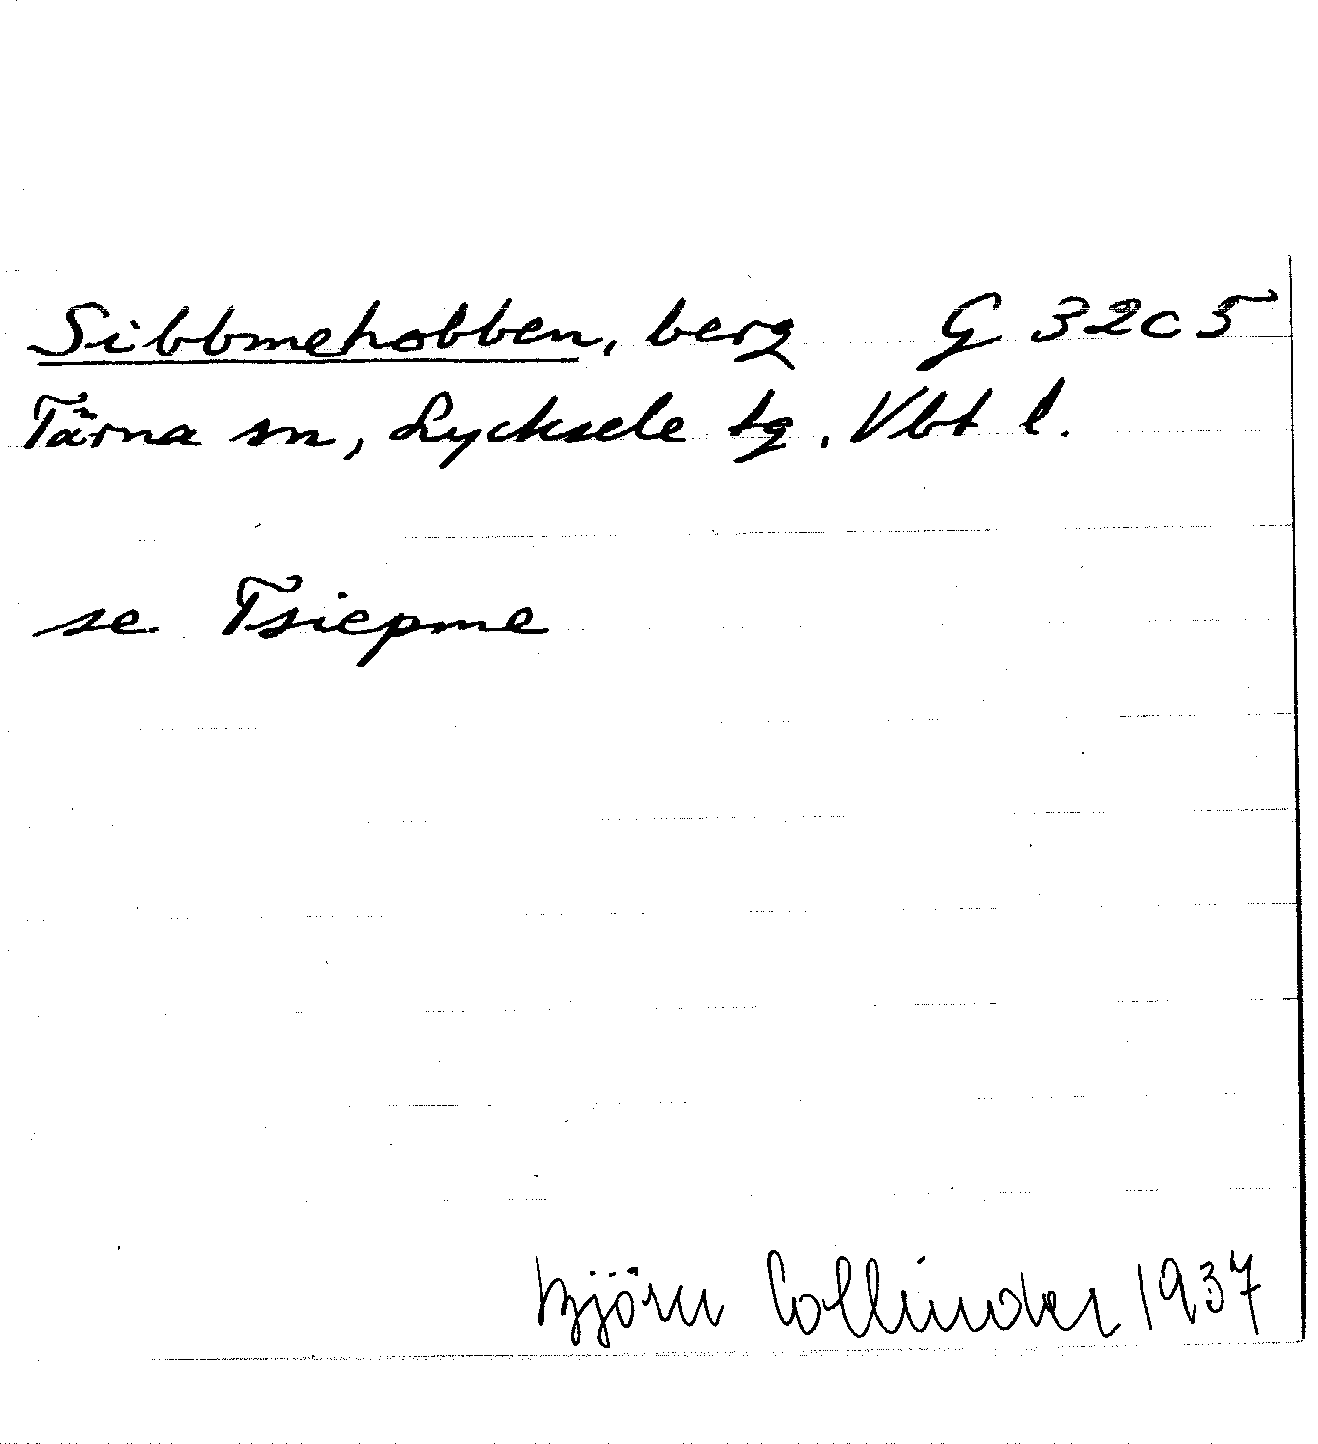 Sibbmehobben, berg G 32c5
Tärna sn, Lycksele tg. Vbt l.
se Tsiepme
Björn Collinder 1937